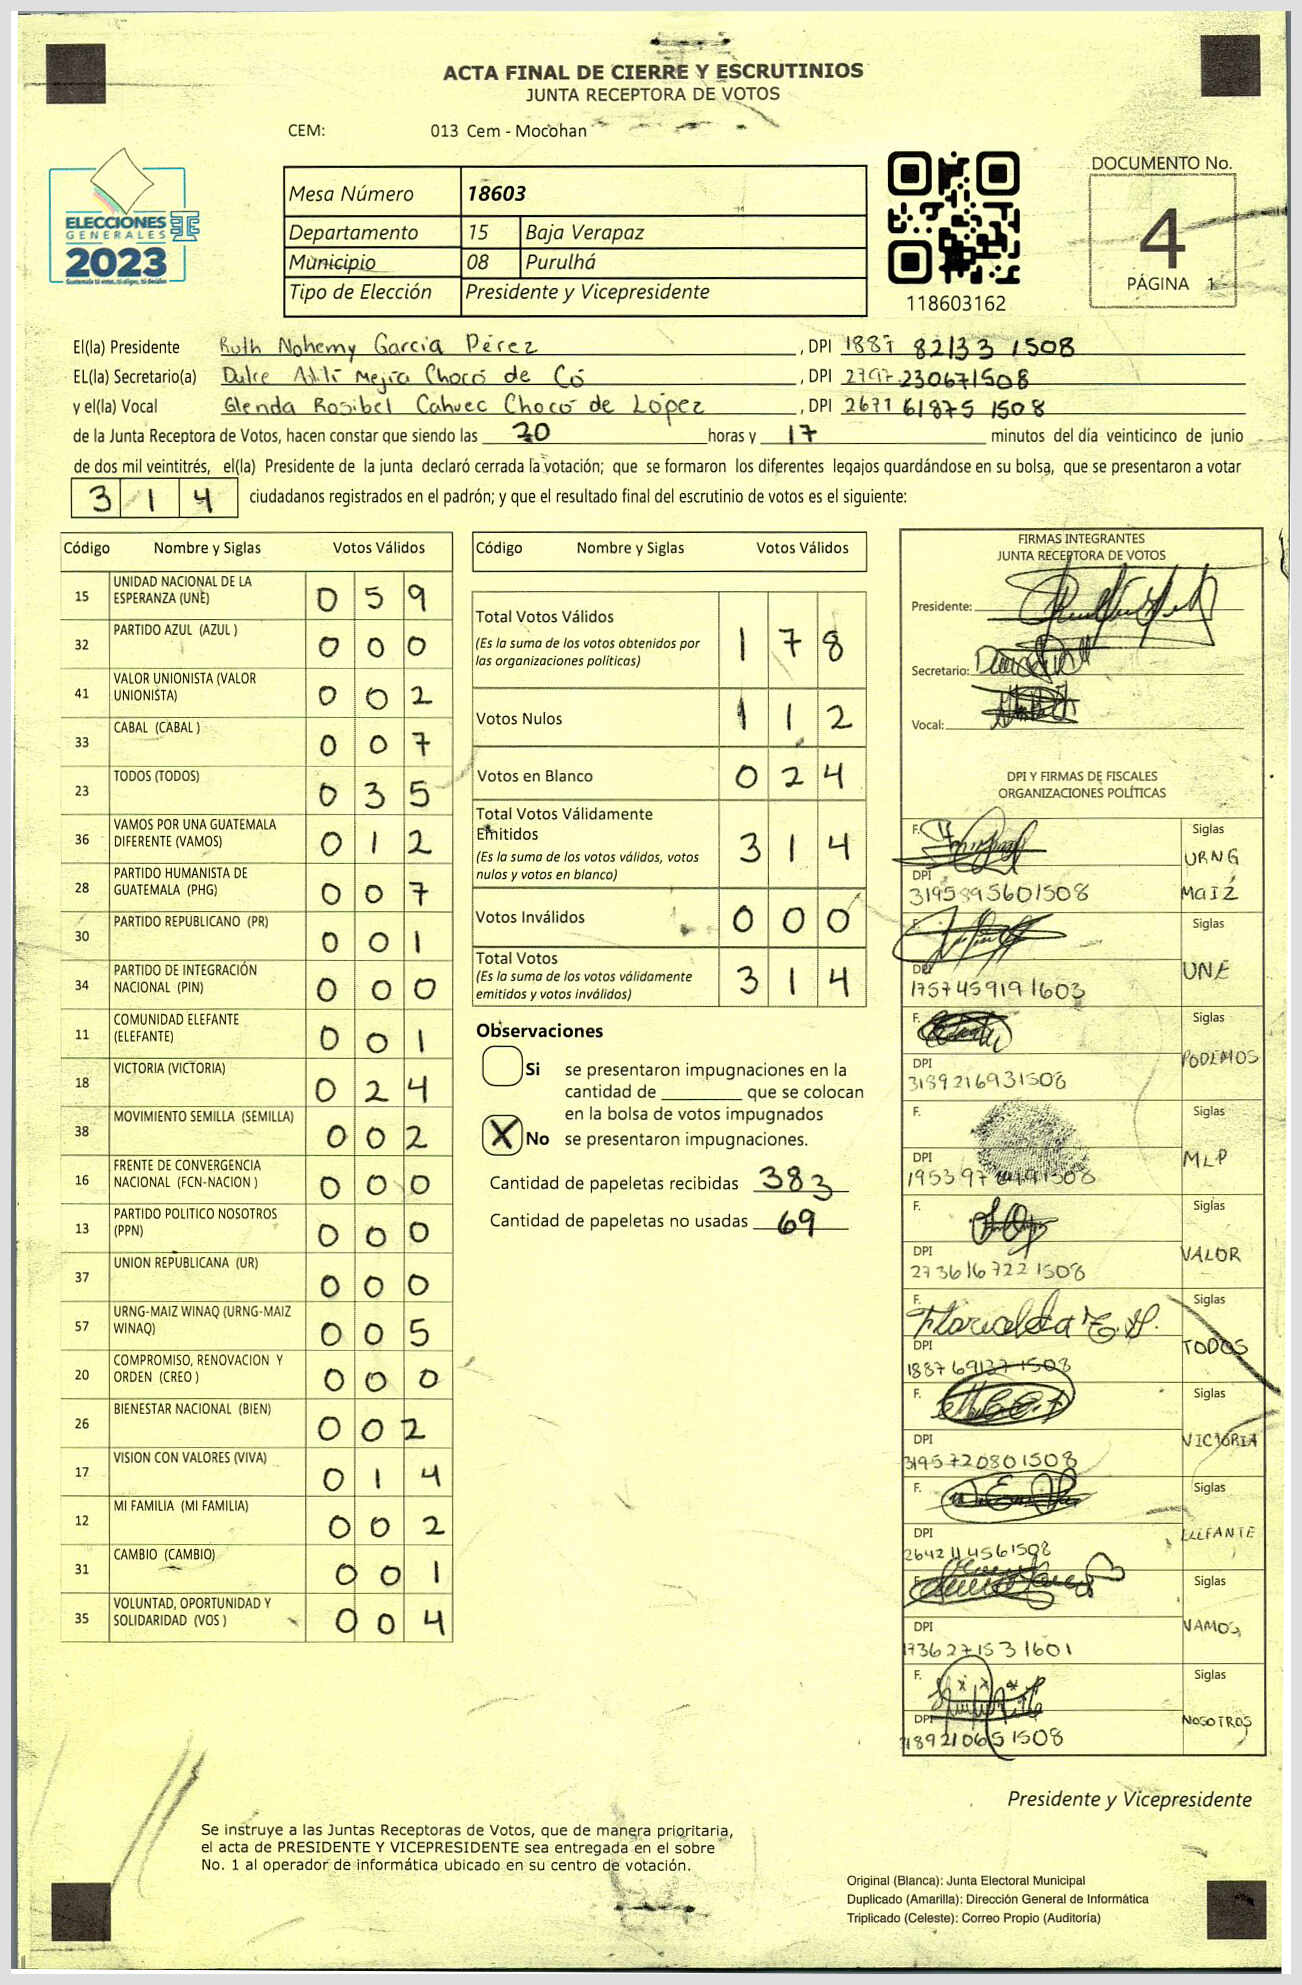 ACTA FINAL DE CIERRE Y ESCRUTINIOS
JUNTA RECEPTORA DE VOTOS
CEM: 013 Cem - Mocohan
ELECCIONES
GENERALES
2023
Mesa Número 18603
Departamento 15 Baja Verapaz
Municipio 08 Purulhá
Tipo de Elección Presidente y Vicepresidente
118603162
DOCUMENTO No.
4
PÁGINA 1
El(la) Presidente Ruth Nohemy Garcia Pérez , DPI 1887 82133 1508
EL(la) Secretario(a) Dulce Mejía Chocó de Có , DPI 2797 23067 1508
y el(la) Vocal Glenda Rosibel Cahuec Chocó de López , DPI 2671 61875 1508
de la Junta Receptora de Votos, hacen constar que siendo las 20 horas y 17 minutos del día veinticinco de junio
de dos mil veintitrés, el(la) Presidente de la junta declaró cerrada la votación; que se formaron los diferentes legajos quardándose en su bolsa, que se presentaron a votar
314 ciudadanos registrados en el padrón; y que el resultado final del escrutinio de votos es el siguiente:
Código Nombre y Siglas Votos Válidos
15 UNIDAD NACIONAL DE LA ESPERANZA (UNE) 0 5 9
32 PARTIDO AZUL (AZUL ) 0 0 0
41 VALOR UNIONISTA (VALOR UNIONISTA) 0 0 2
33 CABAL (CABAL ) 0 0 7
23 TODOS (TODOS) 0 3 5
36 VAMOS POR UNA GUATEMALA DIFERENTE (VAMOS) 0 1 2
28 PARTIDO HUMANISTA DE GUATEMALA (PHG) 0 0 7
30 PARTIDO REPUBLICANO (PR) 0 0 1
34 PARTIDO DE INTEGRACIÓN NACIONAL (PIN) 0 0 0
11 COMUNIDAD ELEFANTE (ELEFANTE) 0 0 1
18 VICTORIA (VICTORIA) 0 2 4
38 MOVIMIENTO SEMILLA (SEMILLA) 0 0 2
16 FRENTE DE CONVERGENCIA NACIONAL (FCN-NACION ) 0 0 0
13 PARTIDO POLITICO NOSOTROS (PPN) 0 0 0
37 UNION REPUBLICANA (UR) 0 0 0
57 URNG-MAIZ WINAQ (URNG-MAIZ WINAQ) 0 0 5
20 COMPROMISO, RENOVACION Y ORDEN (CREO ) 0 0 0
26 BIENESTAR NACIONAL (BIEN) 0 0 2
17 VISION CON VALORES (VIVA) 0 1 4
12 MI FAMILIA (MI FAMILIA) 0 0 2
31 CAMBIO (CAMBIO) 0 0 1
35 VOLUNTAD, OPORTUNIDAD Y SOLIDARIDAD (VOS ) 0 0 4
Código Nombre y Siglas Votos Válidos
Total Votos Válidos 1 7 8
(Es la suma de los votos obtenidos por
las organizaciones políticas)
Votos Nulos 1 1 2
Votos en Blanco 0 2 4
Total Votos Válidamente
Emitidos 3 1 4
(Es la suma de los votos válidos, votos
nulos y votos en blanco)
Votos Inválidos 0 0 0
Total Votos 3 1 4
(Es la suma de los votos válidamente
emitidos y votos inválidos)
Observaciones
Si se presentaron impugnaciones en la
cantidad de ______ que se colocan
en la bolsa de votos impugnados
X No se presentaron impugnaciones.
Cantidad de papeletas recibidas 383
Cantidad de papeletas no usadas 69
FIRMAS INTEGRANTES
JUNTA RECEPTORA DE VOTOS
Presidente:
Secretario:
Vocal:
DPI Y FIRMAS DE FISCALES
ORGANIZACIONES POLÍTICAS
F. Siglas URNG MaIZ
DPI 3195895601508
F. Siglas UNE
DPI 1757459191603
F. Siglas PODEMOS
DPI 3189216931508
F. Siglas MLP
DPI
F. Siglas VALOR
DPI 2736167221508
F. Siglas TODOS
DPI 1887691371508
F. Siglas VICTORIA
DPI 3195720801508
F. Siglas ELEFANTE
DPI 2642114561508
F. Siglas VAMOS
DPI 1736271531601
F. Siglas NOSOTROS
DPI 3189210651508
Presidente y Vicepresidente
Se instruye a las Juntas Receptoras de Votos, que de manera prioritaria,
el acta de PRESIDENTE Y VICEPRESIDENTE sea entregada en el sobre
No. 1 al operador de informática ubicado en su centro de votación.
Original (Blanca): Junta Electoral Municipal
Duplicado (Amarilla): Dirección General de Informática
Triplicado (Celeste): Correo Propio (Auditoría)